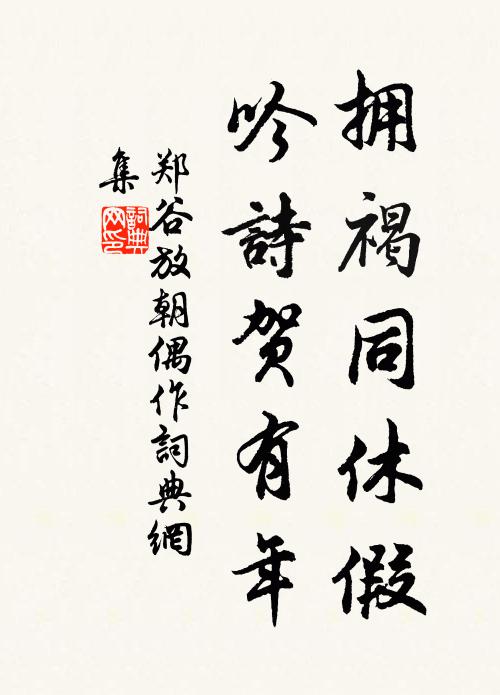 拥褐同休假
吟詩贺有年
郑谷放朝偶作詞典網
集
詞典
网印